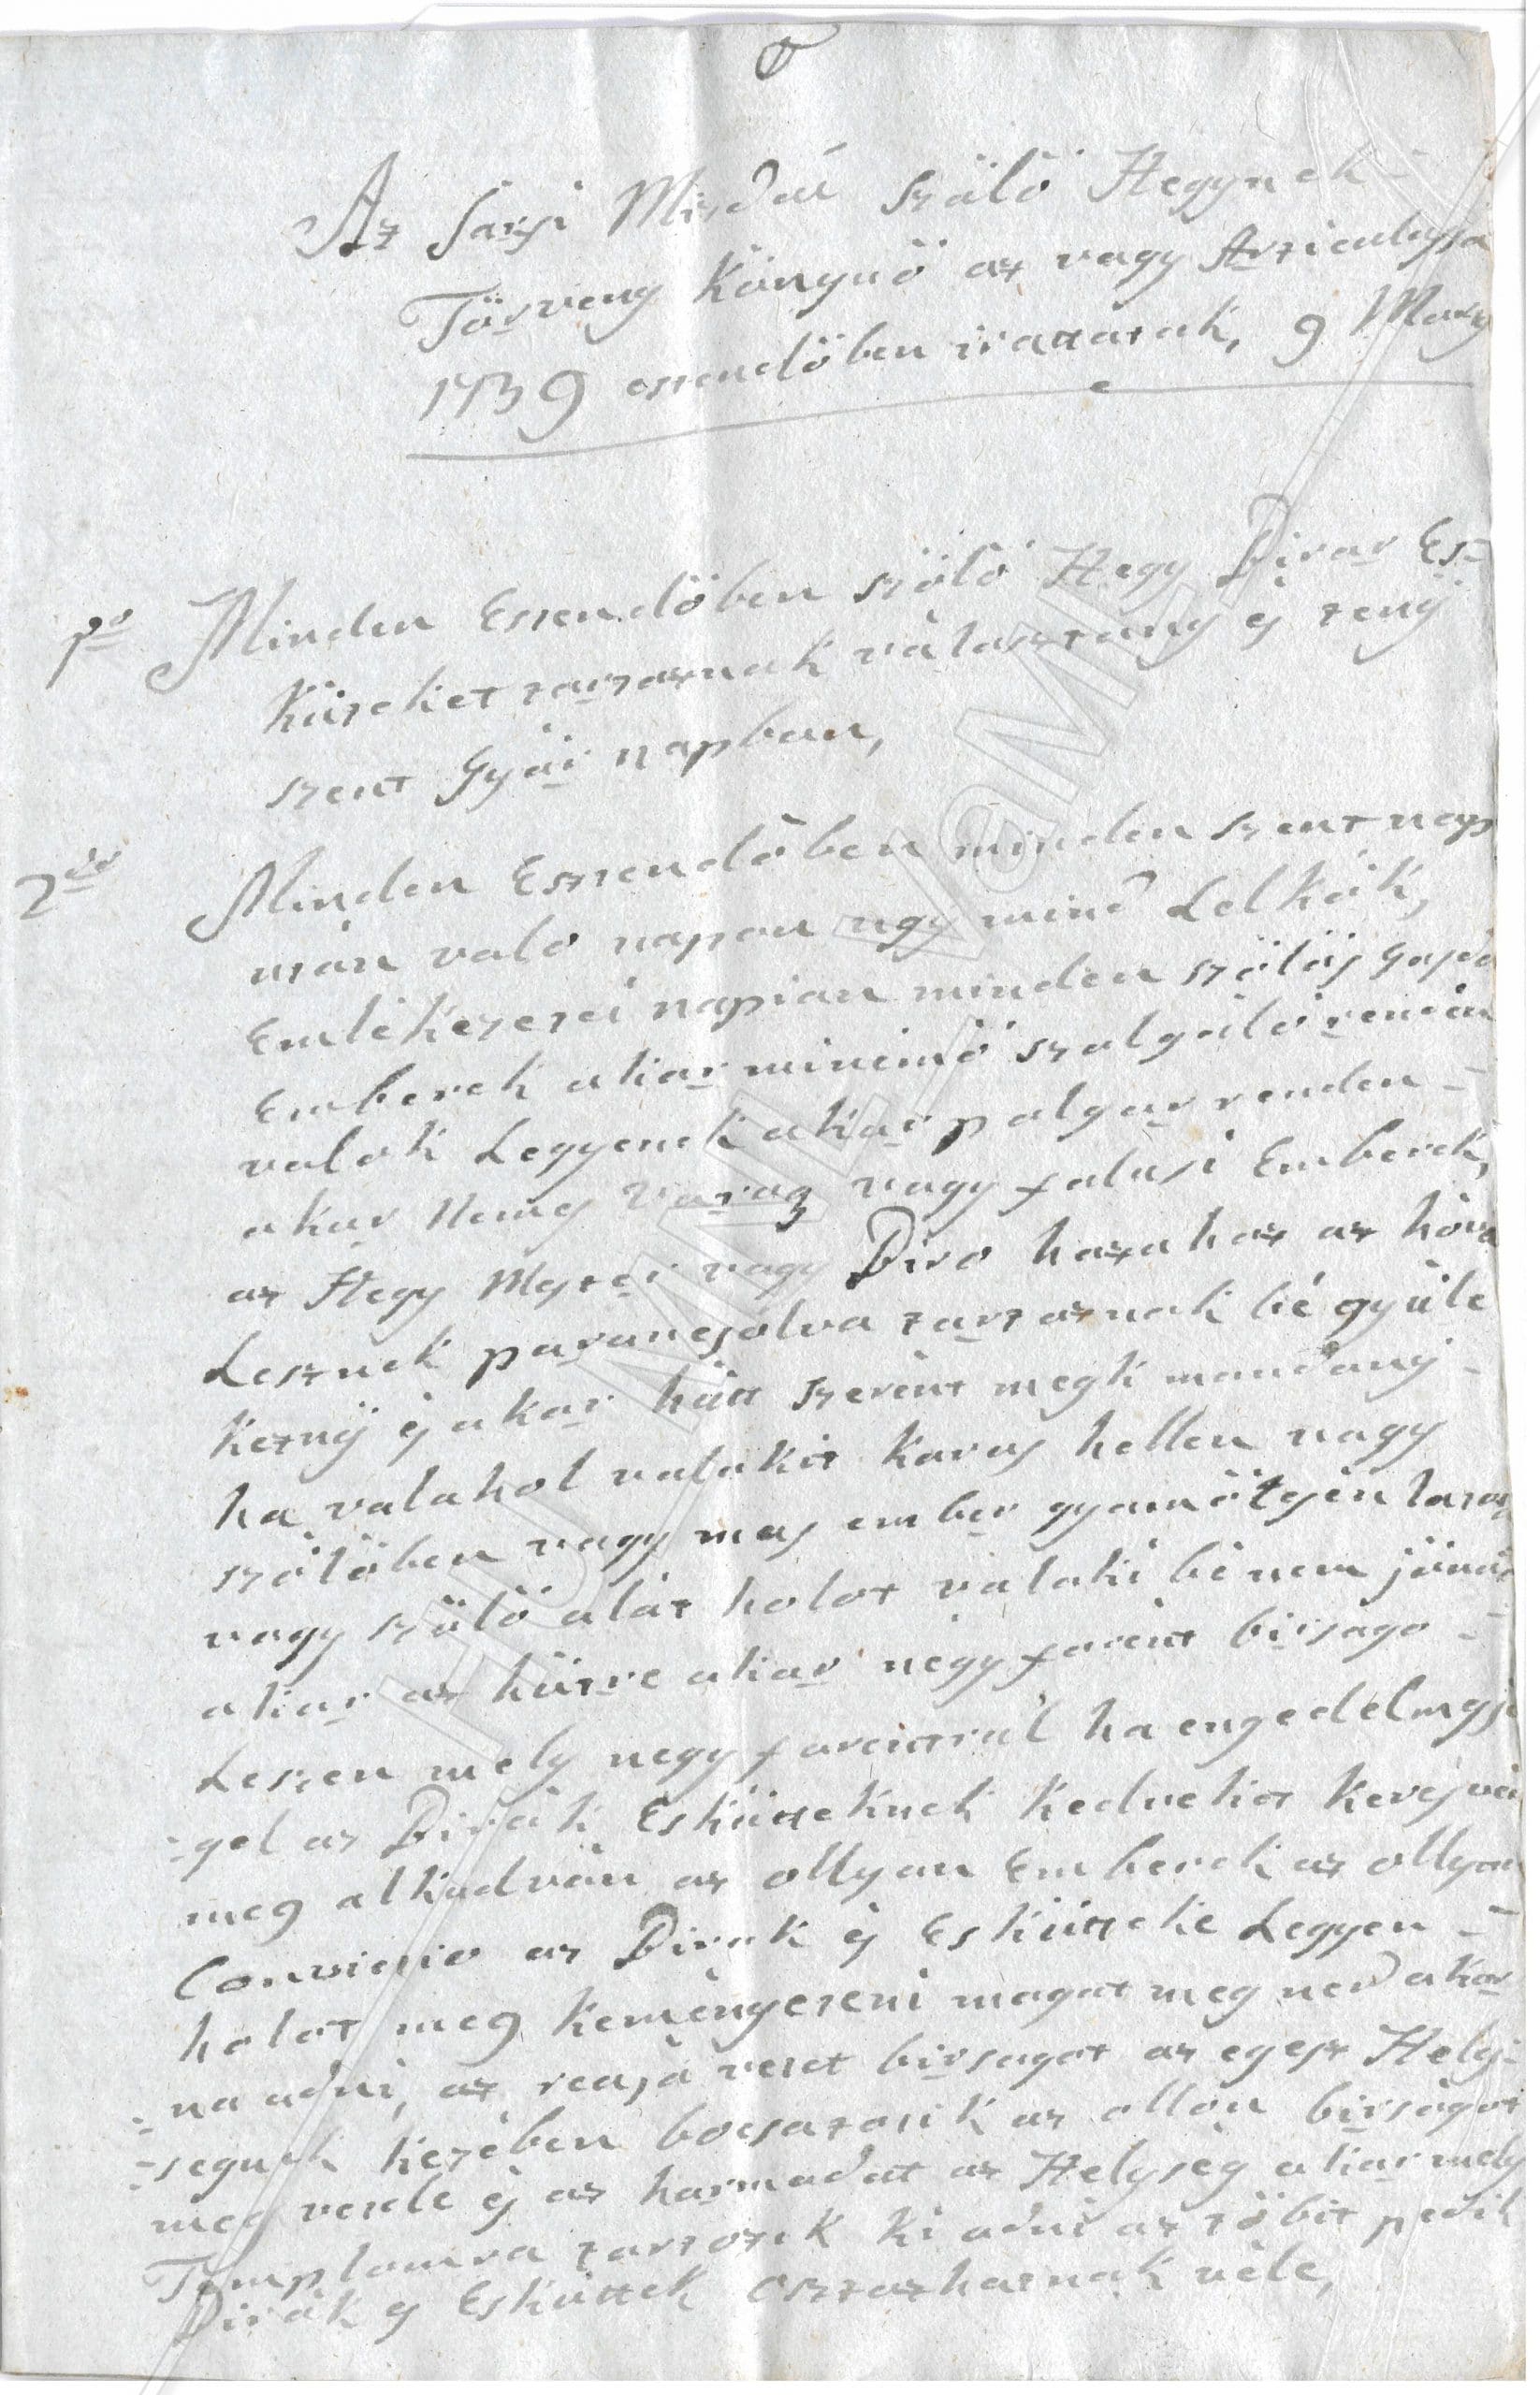 Az Sarsi Mindal szölö Hegynek-
Törveny Könyvö az vagy Articulussa
1739 esztendöben irattatak, 9 Mary
1o Minden Esztendöben szölö Hegy Birar Es-
küteket tartoznak választany es tenÿ
szent Györ napban,
2do Minden Esztendöben minden szent nap
után valo napon ugy mind Lelkök,
Emlékezetei napian minden szölös Gazda
Emberek akar minimö szalgáló renden
valok Legyenek akar palgar renden-
akar Nemes Varas vagy falusi Emberek,
az Hegy Mester vagy Biro hazahoz az hova
Lesznek parancsolva tartoznak bé gyüle
keznÿ es akar hütt szerint megk mondanÿ-
ha valahol valakit karas hellen vagy
szölöben vagy mas ember gyümötsén
vagy szölö alat holot valaki bé nem jönne
akar az hütre akar négy forént birsago-
Leszen mely negy forentrul ha engedelmessé
-gel az Birák Esküteknek kedveket keresvén
meg alkudván az ollyan Emberek az ollyan
Convictio az Birak és Eskütteke Legyen-
holot meg keményeteni magat meg ned akar
na adni, az reajá vetet birsagot az egesz Hely-
-segnek kezében bocsatatik az ollon birságot
meg veszle és az harmadat az Helység akar mely
Templomra tartozik ki adni az töbit pedik
Birák es Eskuttek osztozhatnak véle,